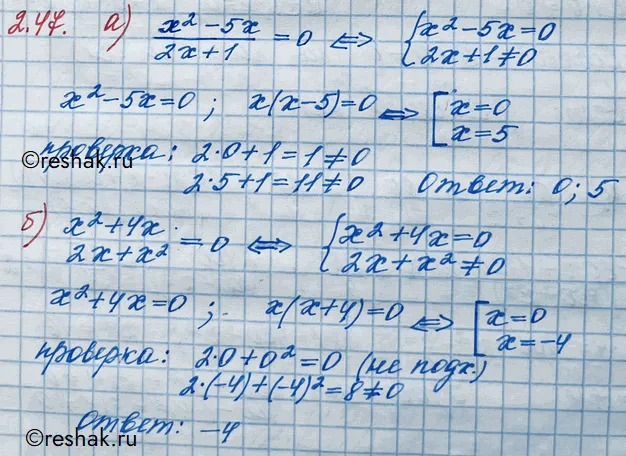 2.47. а) (x²-5x)/(2x+1) = 0 ⇔ { x²-5x=0
2x+1≠0
x²-5x=0; x(x-5)=0 ⇔ [ x=0
x=5
проверка: 2·0+1=1≠0
©reshak.ru
2·5+1=11≠0 Ответ: 0; 5
б) (x²+4x)/(2x+x²) = 0 ⇔ { x²+4x=0
2x+x²≠0
x²+4x=0; x(x+4)=0 ⇔ [ x=0
x=-4
проверка: 2·0+0²=0 (не подх.)
2·(-4)+(-4)²=8≠0
Ответ: -4
©reshak.ru